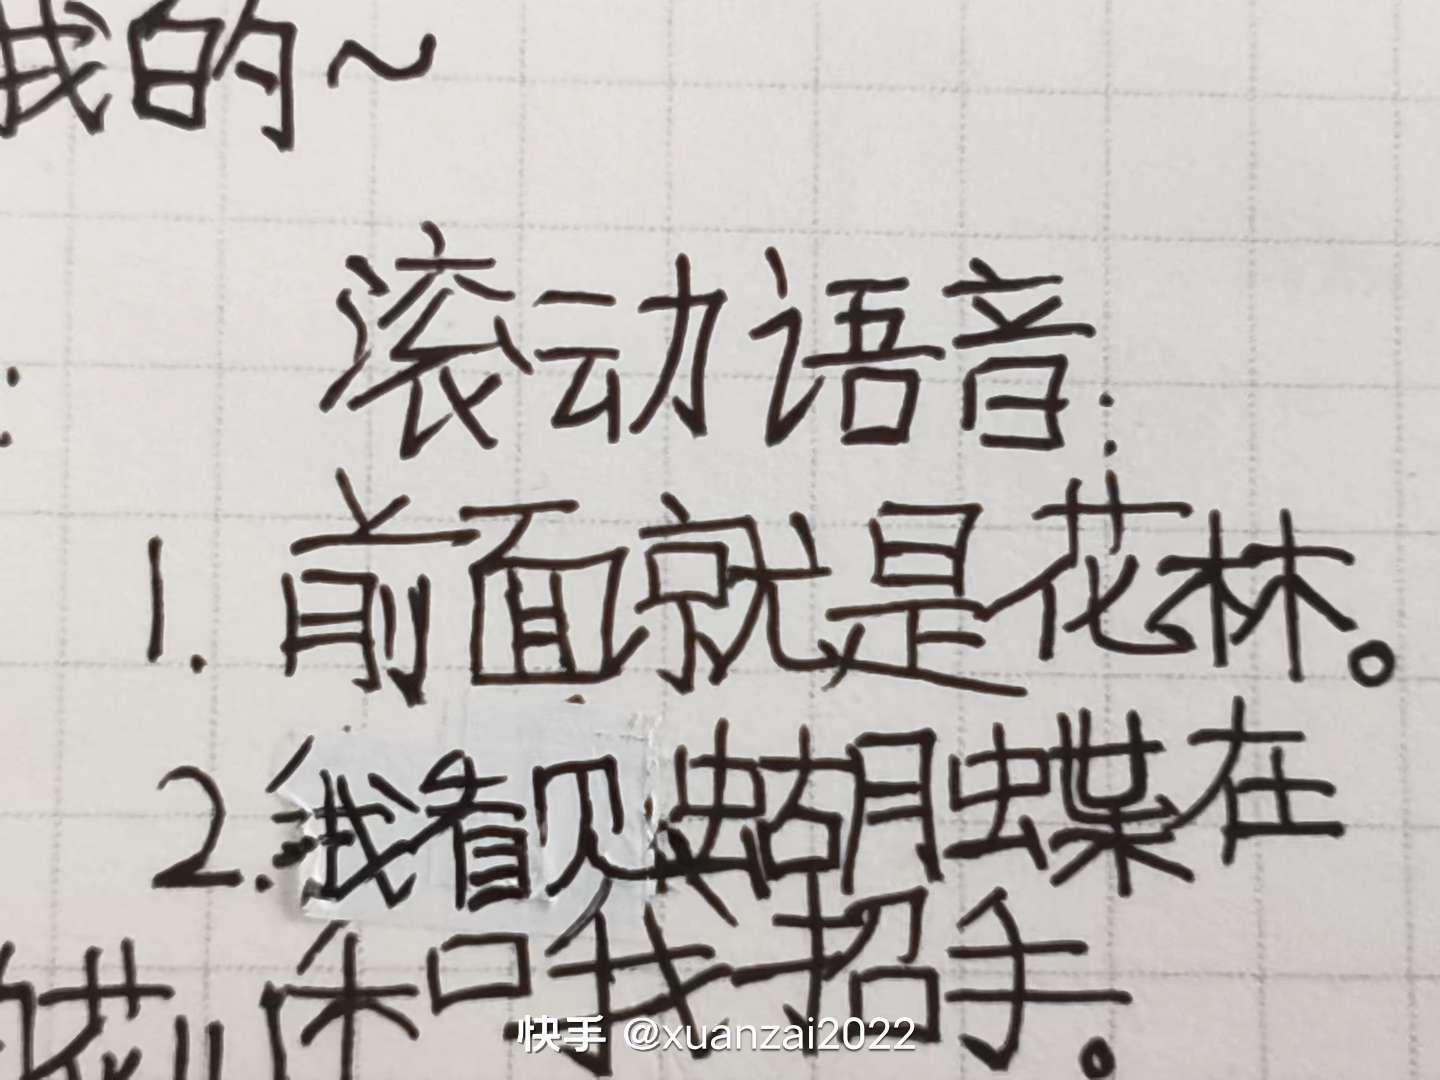 我的~
滚动语音:
:
1. 前面就是花林。
2. 我看见蝴蝶在
和我招手。
快手 @xuanzai2022